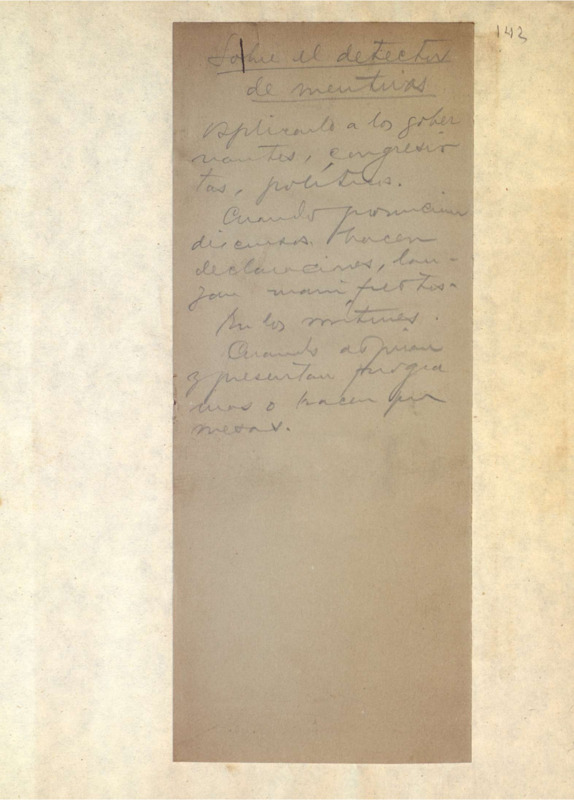 142
Sobre el detector
de mentiras
Aplicarlo a los gober
nantes, congresis
tas, políticos.
Cuando pronuncian
discursos hacen
declaraciones, lan-
zan manifiestos.
En los mítines.
Cuando aspiran
y presentan progra
mas o hacen pro
mesas.